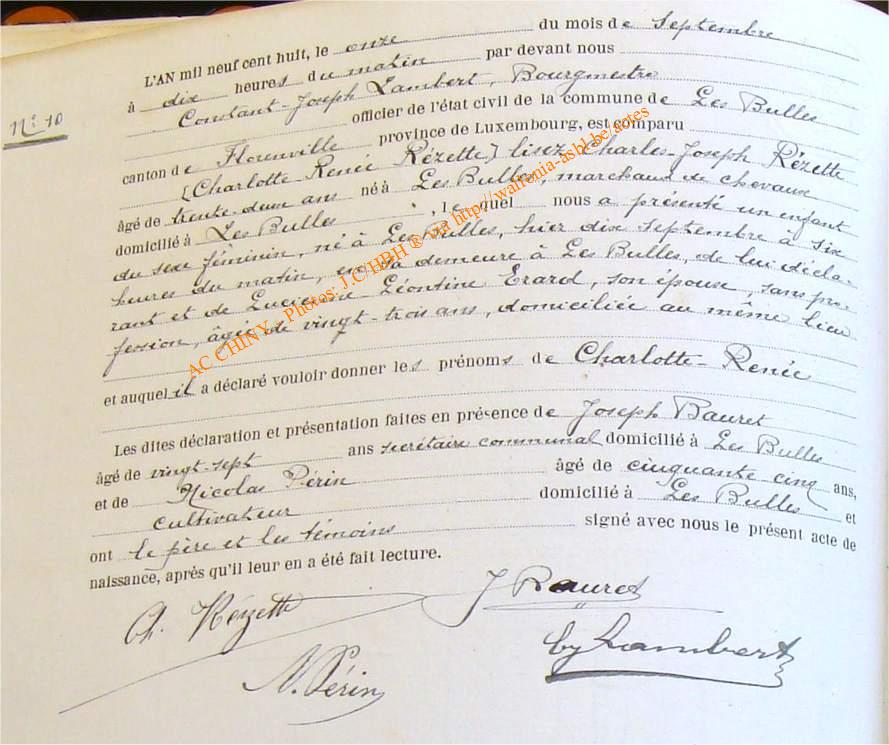 L'AN mil neuf cent huit, le onze du mois de Septembre
à dix heures du matin par devant nous
Constant-Joseph Lambert, Bourgmestre
Nº 10
officier de l'état civil de la commune de Les Bulles
canton de Florenville province de Luxembourg, est comparu
(Charlotte-Renée Rézette) lisez Charles-Joseph Rézette
âgé de trente-deux ans né à Les Bulles, marchand de chevaux
domicilié à Les Bulles, lequel nous a présenté un enfant
du sexe féminin, né à Les Bulles, hier dix septembre à six
heures du matin, en sa demeure à Les Bulles, de lui décla-
rant et de Lucienne Léontine Erard, son épouse, sans pro-
fession, âgée de vingt-trois ans, domiciliée au même lieu
et auquel il a déclaré vouloir donner les prénoms de Charlotte-Renée
Les dites déclaration et présentation faites en présence de Joseph Bauret
âgé de vingt-sept ans secrétaire communal domicilié à Les Bulles
et de Nicolas Périn âgé de cinquante cinq ans,
cultivateur domicilié à Les Bulles et
ont le père et les témoins signé avec nous le présent acte de
naissance, après qu'il leur en a été fait lecture.
Ch. Rézette J Bauret
N. Périn Lambert
AC CHINY - Photos: J.C/HBH ® via http://wallonia-asbl.be/actes